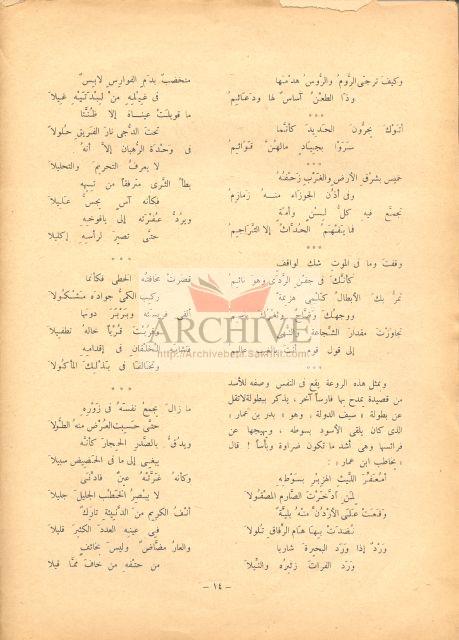 وكيف ترجى الروم والروس هدمها
وذا الطعن آساس لها ودعائم
***
أتوك يجرون الحديد كأنما
سروا بجياد مالهن قوائم
***
خميس بشرق الأرض والغرب زحفه
وفى أذن الجوزاء منه زمازم
تجمع فيه كل لسن وأمة
فما يفهم الحداث إلا التراجم
***
وقفت وما فى الموت شك لواقف
كأنك فى جفن الردى وهو نائم
تمر بك الأبطال كلمى هزيمة
ووجهك وضاح وثغرك باسم
تجاوزت مقدار الشجاعة والنهى
إلى قول قوم أنت بالغيب عالم
***
وبمثل هذه الروعة يقع فى النفس وصفه للأسد
من قصيدة يمدح بها فارساً آخر، يذكر ببطولة لاتقل
عن بطولة « سيف الدولة » وهو « بدر بن عمار »
الذى كان يلقى الأسود بسوطه ، ويهيجها عن
فرائسها وهى أشد ما تكون ضراوة وبأساً ! قال
« يخاطب ابن عمار » :
أمعفر الليث الهزبر بسوطه
لمن ادخرت الصارم المصقولا
وقعت على الأردن منه بلية
نضدت بها هام الرفاق تلولا
ورد إذا ورد البحيرة شاربا
ورد الفرات زئيره والنيلا
متخضب بدم الفوارس لابس
فى غيله من لبدتيه غيلا
ما قوبلت عيناه إلا ظنتا
تحت الدجى نار الفريق حلولا
فى وحدة الرهبان إلا أنه
لا يعرف التحريم والتحليلا
يطأ الثرى مترفقاً من تيهه
فكأنه آس يجس عليلا
ويرد عفرته إلى يافوخه
حتى تصير لرأسه إكليلا
قصرت مخافته الخطى فكأنما
ركب الكمى جواده مشكولا
ألقى فريسته وبربر دونها
وقربت قرباً خاله تطفيلا
فتشابه الخلقان فى إقدامه
وتخالفا فى بذلك المأكولا
***
ما زال يجمع نفسه فى زوره
حتى حسبت العرض منه الطولا
ويدق بالصدر الحجار كأنه
يبغى إلى ما فى الحضيض سبيلا
وكأنه غرته عين فادنى
لا يبصر الخطب الجليل جليلا
أنف الكريم من الدنيئة تارك
فى عينه العدد الكثير قليلا
والعار مضاض وليس بخائف
من حتفه من خاف مما قيلا
— ١٤ —
ARCHIVE
http://Archivebeta.Sakhrit.com